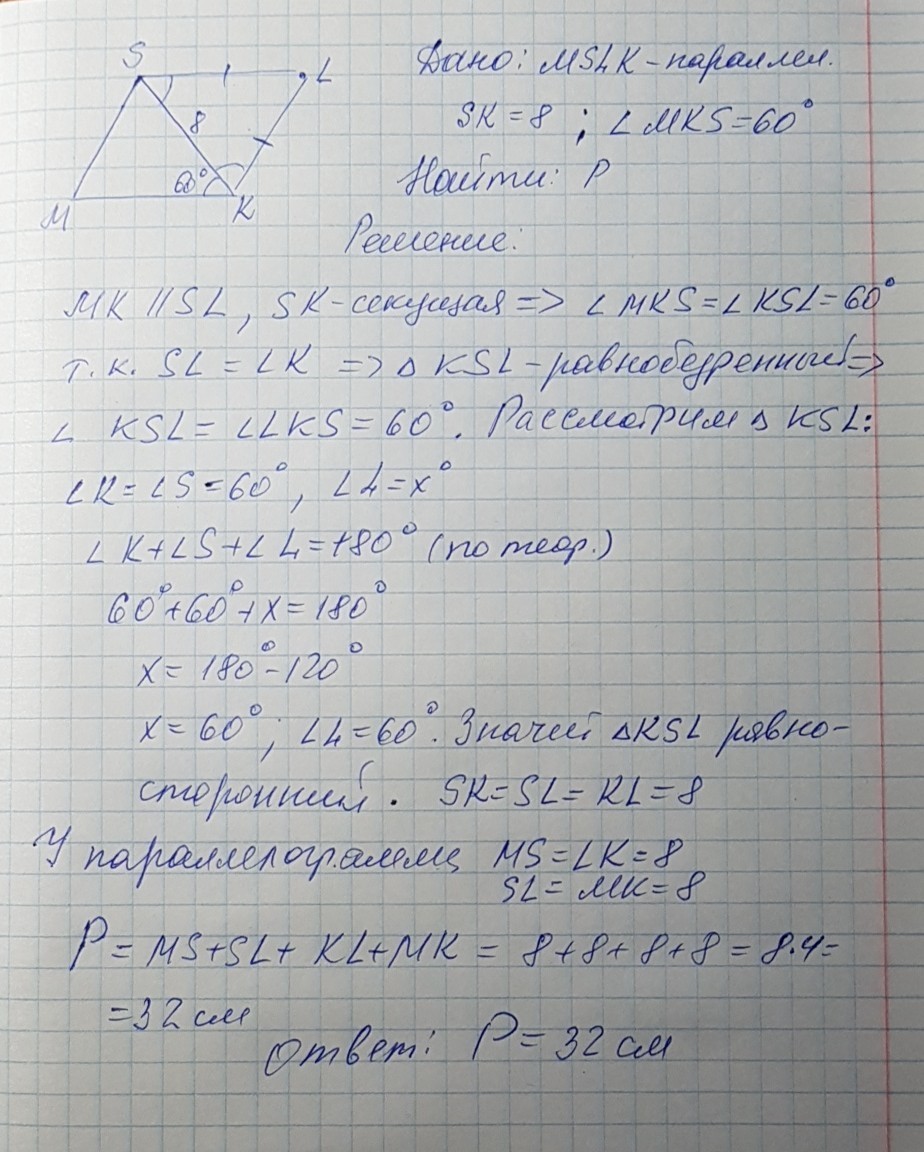 S L Дано: MSLK - параллел.
8 SK = 8 ; ∠ MKS = 60°
60° Найти: P
M K
Решение:
MK || SL, SK - секущая => ∠ MKS = ∠ KSL = 60°
т.к. SL = LK => △ KSL - равнобедренный =>
∠ KSL = ∠LKS = 60°. Рассмотрим △ KSL:
∠K = ∠S = 60°, ∠L = x°
∠K + ∠S + ∠L = 180° (по теор.)
60° + 60° + x = 180°
x = 180° - 120°
x = 60°; ∠L = 60°. Значит △KSL равно-
сторонний. SK = SL = KL = 8
У параллелограмма MS = LK = 8
SL = MK = 8
P = MS + SL + KL + MK = 8 + 8 + 8 + 8 = 8·4 =
= 32 см
Ответ: P = 32 см